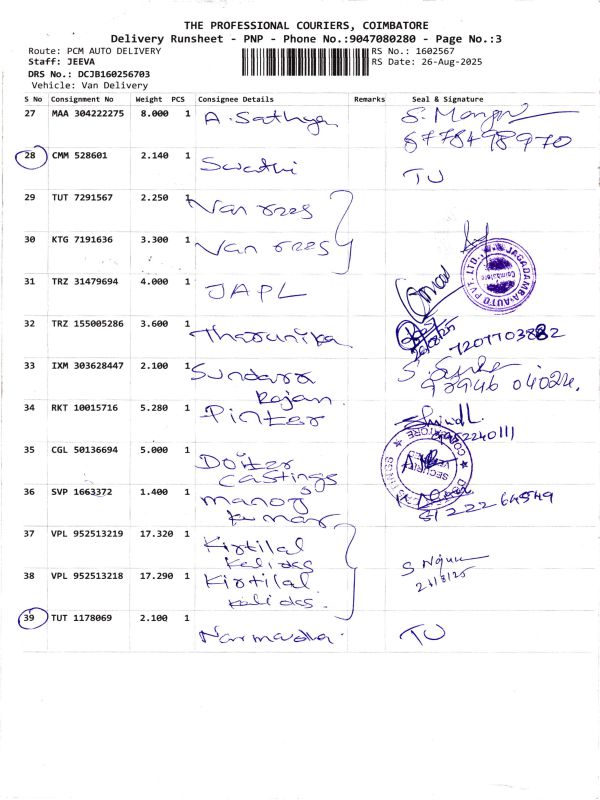 THE PROFESSIONAL COURIERS, COIMBATORE
Delivery Runsheet - PNP - Phone No.:9047080280 - Page No.:3
Route: PCM AUTO DELIVERY
RS No.: 1602567
Staff: JEEVA
RS Date: 26-Aug-2025
DRS No.: DCJB160256703
Vehicle: Van Delivery
S No Consignment No Weight PCS Consignee Details Remarks Seal & Signature
27 MAA 304222275 8.000 1 A. Sathya
8778498970
28 CMM 528601 2.140 1 Swathi TU
29 TUT 7291567 2.250 1 Van
30 KTG 7191636 3.300 1 Van
31 TRZ 31479694 4.000 1 JAPL
JAGADAMBA AUTO PVT. LTD.
Coimbatore
32 TRZ 155005286 3.600 1 Tharunika
26/8/25
7207703882
33 IXM 303628447 2.100 1 Sundara
Rajan
34 RKT 10015716 5.280 1 Pinter
35 CGL 50136694 5.000 1 Doiter
castings
COIMBATORE
SECURITY
36 SVP 1663372 1.400 1 manoj
kumar
37 VPL 952513219 17.320 1 Kirtilal
Kalidas
38 VPL 952513218 17.290 1 Kirtilal
Kalidas.
39 TUT 1178069 2.100 1 Narmadha. TU